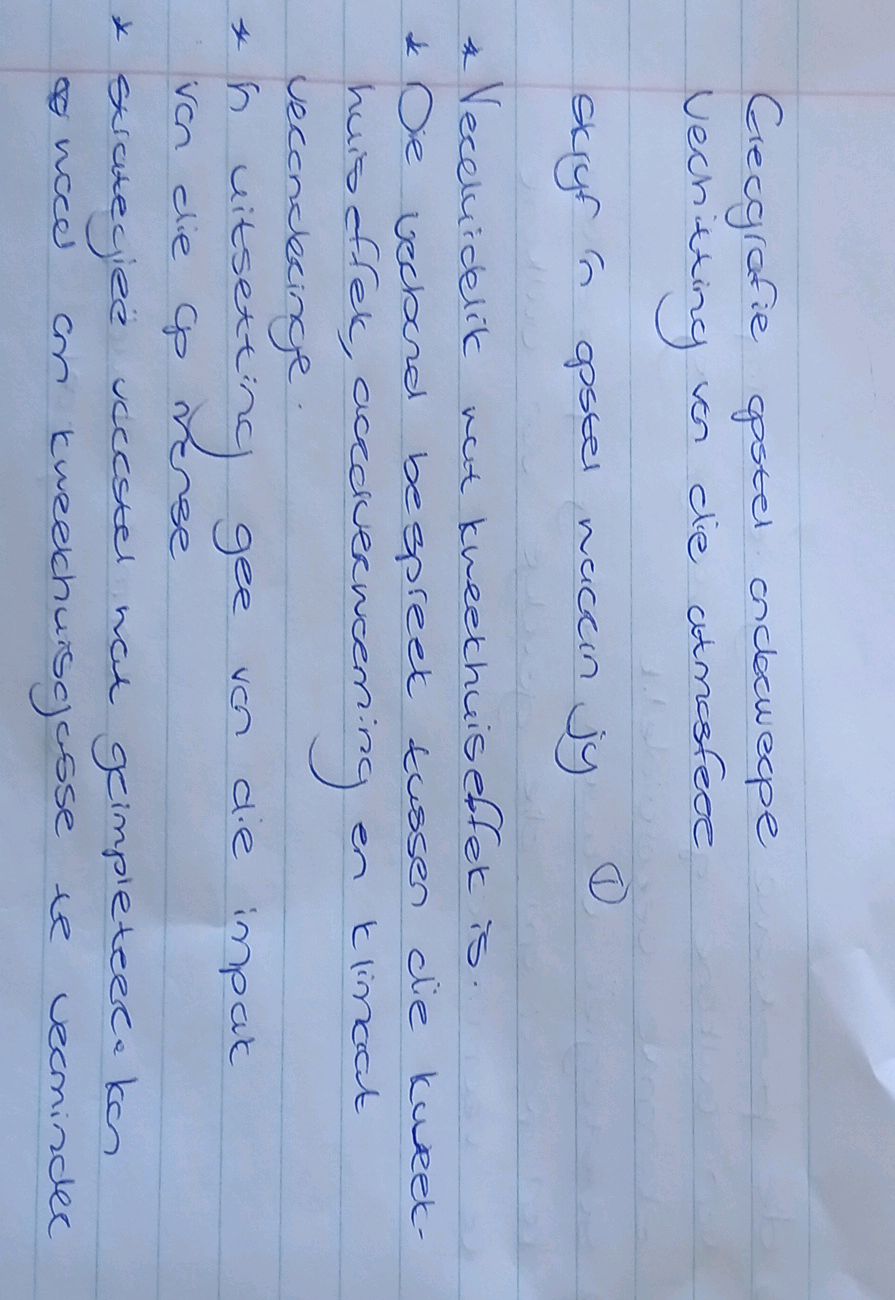 Geografie opstel onderwerpe
Verhitting van die atmosfeer
skryf 'n opstel waarin jy
①
* Verduidelik wat kweekhuiseffek is.
* Die verband bespreek tussen die kweek-
huiseffek, aardverwarming en klimaat
veranderinge.
* 'n uitsetting gee van die impak
van die op mense
* strategieë voorstel wat geimpleteer kan
word om kweekhuisgasse te verminder